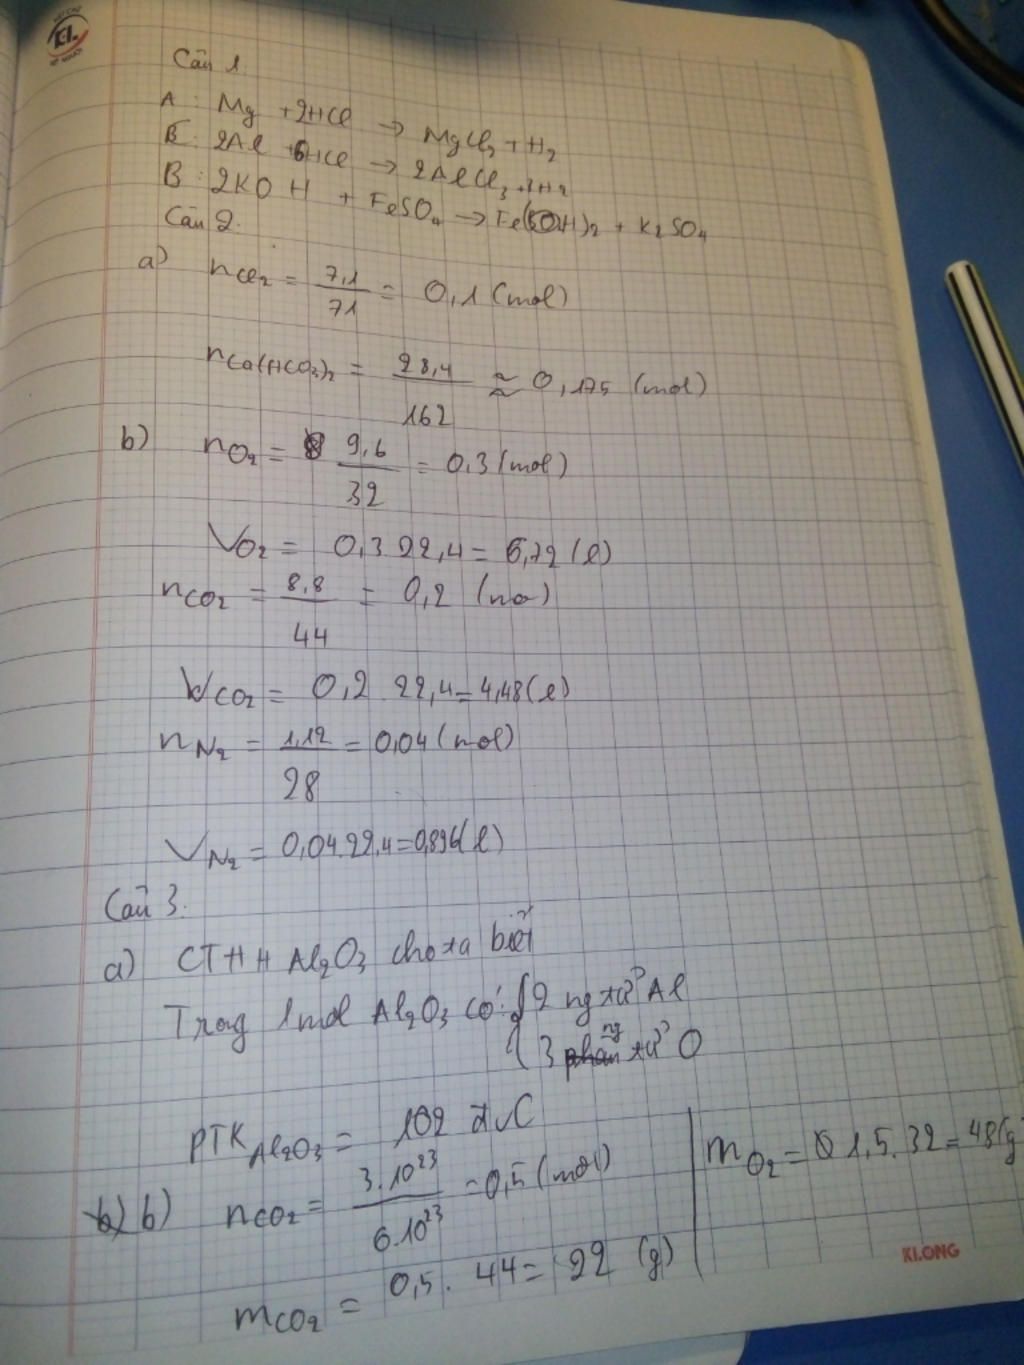 Câu 1.
A : Mg + 2HCl → MgCl2 + H2
B : 2Al + 6HCl → 2AlCl3 + 3H2
B : 2KOH + FeSO4 → Fe(OH)2 + K2SO4
Câu 2.
a) nCl2 = 7,1/71 = 0,1 (mol)
nCa(HCO3)2 = 28,4/162 ≈ 0,175 (mol)
b) nO2 = 9,6/32 = 0,3 (mol)
VO2 = 0,3.22,4 = 6,72 (l)
nCO2 = 8,8/44 = 0,2 (mo)
VCO2 = 0,2 22,4 = 4,48 (l)
nN2 = 1,12/28 = 0,04 (mol)
VN2 = 0,04.22,4 = 0,896 (l)
Câu 3.
a) CTHH Al2O3 cho ta biết
Trog 1 mol Al2O3 có: { 2 ng tử Al
3 ng tử O
PTK Al2O3 = 102 đvC
b) nCO2 = 3.10^23/6.10^23 = 0,5 (mol)
mCO2 = 0,5. 44 = 22 (g)
mO2 = 1,5.32 = 48 (g
KLONG